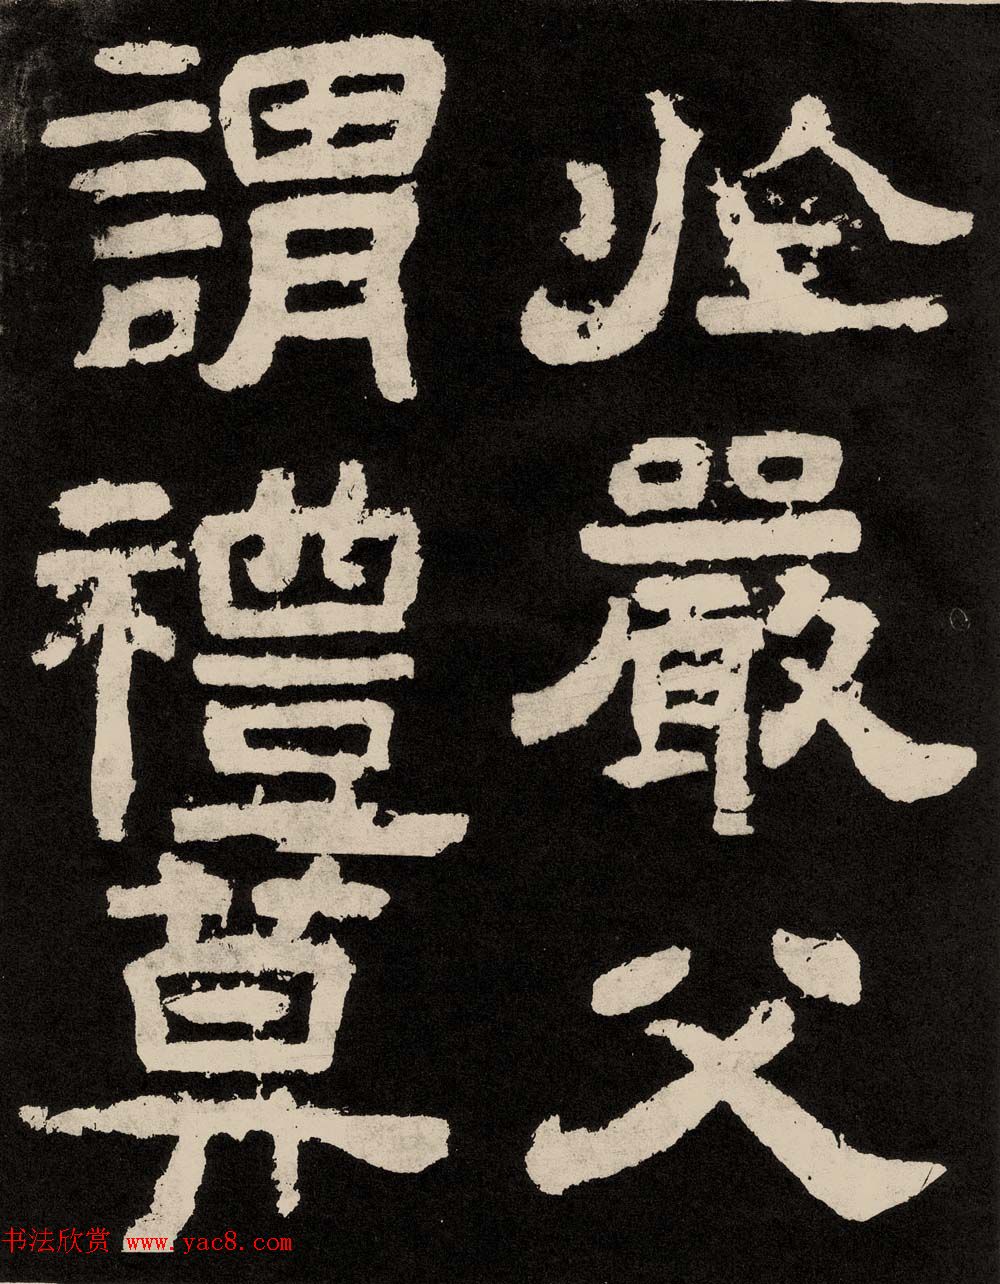 於嚴父
謂禮莫
书法欣赏 www.yac8.com